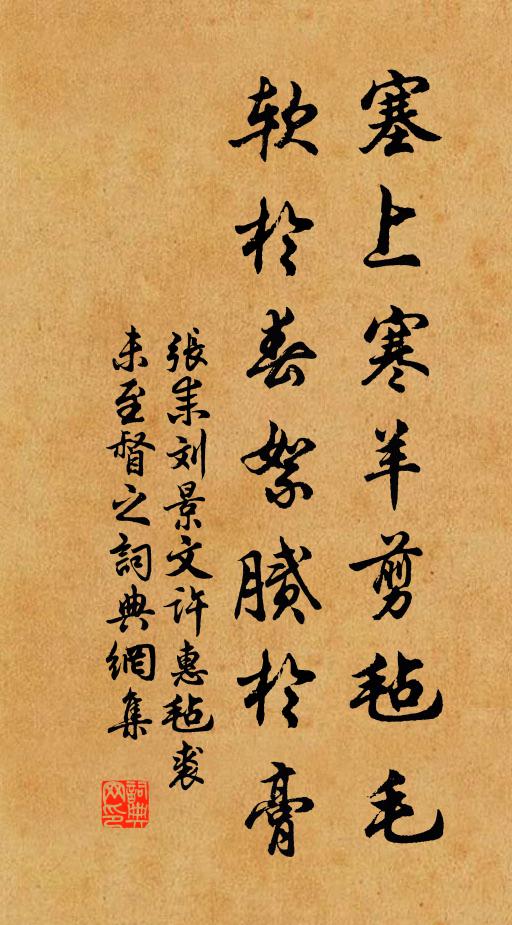 塞上寒羊剪毡毛
软於春絮膩於膏
張耒刘景文许惠毡裘
未至督之詞典網集
詞典網印